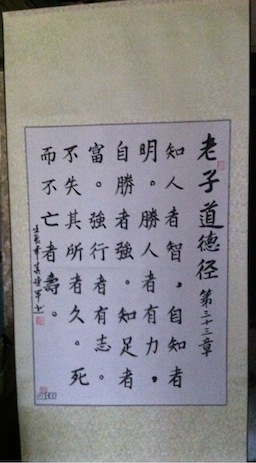 老子道德径 第三十三章
知人者智,自知者
明。勝人者有力,
自勝者強。知足者
富。強行者有志。
不失其所者久。死
而不亡者壽。